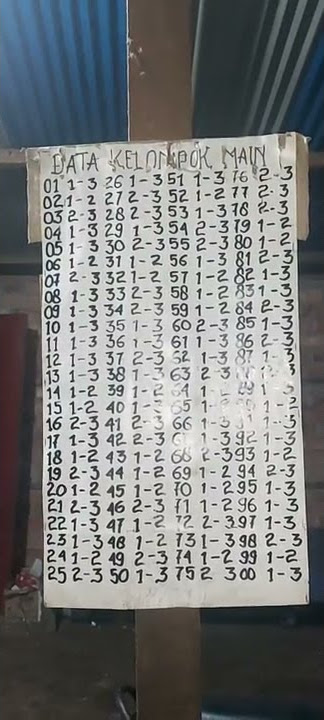 DATA KELOMPOK MAIN
01 1-3 26 1-3 51 1-3 76 2-3
02 1-2 27 2-3 52 1-2 77 2-3
03 2-3 28 2-3 53 1-3 78 2-3
04 1-3 29 1-3 54 2-3 79 1-2
05 1-3 30 2-3 55 2-3 80 1-2
06 1-2 31 1-2 56 1-3 81 2-3
07 2-3 32 1-2 57 1-2 82 1-3
08 1-3 33 2-3 58 1-2 83 1-3
09 1-3 34 2-3 59 1-2 84 2-3
10 1-3 35 1-3 60 2-3 85 1-3
11 1-3 36 1-3 61 1-3 86 2-3
12 1-3 37 2-3 62 1-3 87 1-3
13 1-3 38 1-3 63 2-3
14 1-2 39 1-2 64 1-2 89 1-3
15 1-2 40 1-3 65 1-2
16 2-3 41 2-3 66 1-3 1-3
17 1-3 42 2-3 1-3 92 1-3
18 1-2 43 1-2 68 2-3 93 1-2
19 2-3 44 1-2 69 1-2 94 2-3
20 1-2 45 1-2 70 1-2 95 1-3
21 2-3 46 2-3 71 1-2 96 1-3
22 1-3 47 1-2 72 2-3 97 1-3
23 1-3 48 1-2 73 1-3 98 2-3
24 1-2 49 2-3 74 1-2 99 1-2
25 2-3 50 1-3 75 2 3 00 1-3